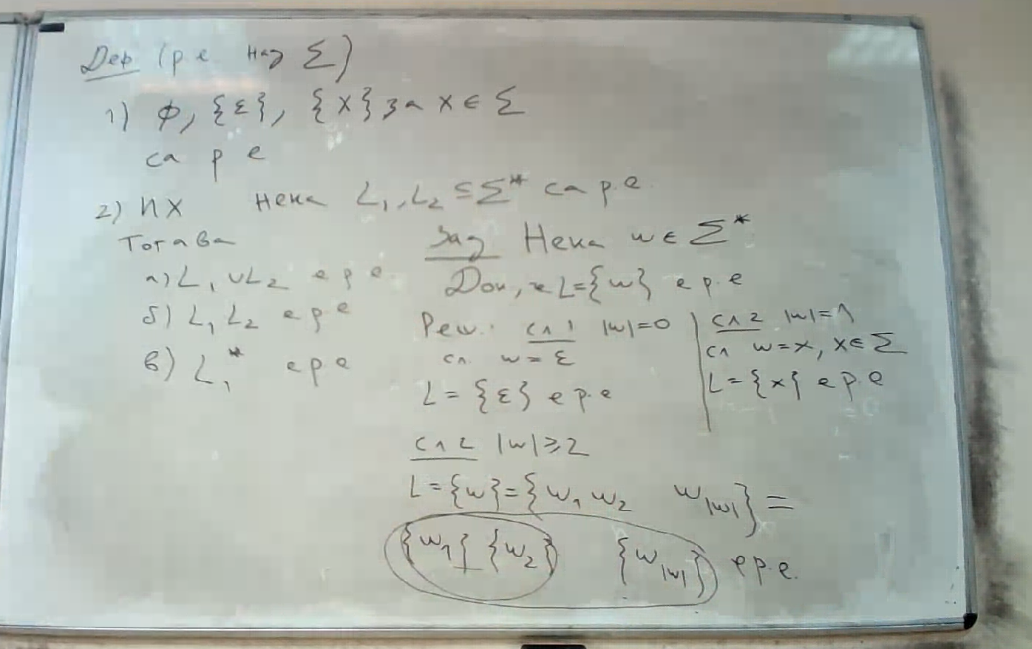 Деф (р.е. над Σ)
1) ∅, {ε}, {x} за x ∈ Σ
са р е
2) ИХ Нека L₁, L₂ ⊆ Σ* са р.е.
Тогава
а) L₁ ∪ L₂ е р е
б) L₁ L₂ е р е
в) L₁* е р е
Зад Нека w ∈ Σ*
Док, че L = {w} е р.е
Реш.: сл 1 |w| = 0
сл. w = ε
L = {ε} е р.е
сл 2 |w| = 1
сл w = x, x ∈ Σ
L = {x} е р.е
сл 2 |w| ≥ 2
L = {w} = {w₁ w₂ w|w|} =
{w₁} {w₂} {w|w|} е р.е.